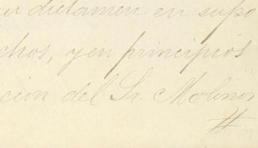 dictamen en supo
chos, y en principios
cion del Sr. Molinos